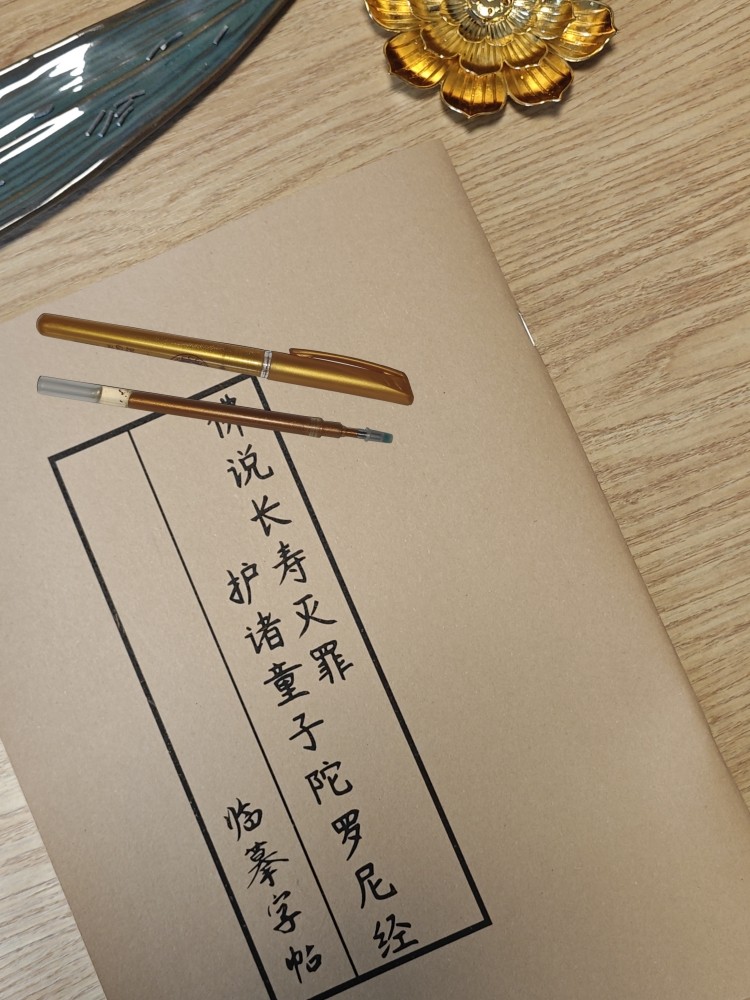 佛说长寿灭罪
护诸童子陀罗尼经
临摹字帖